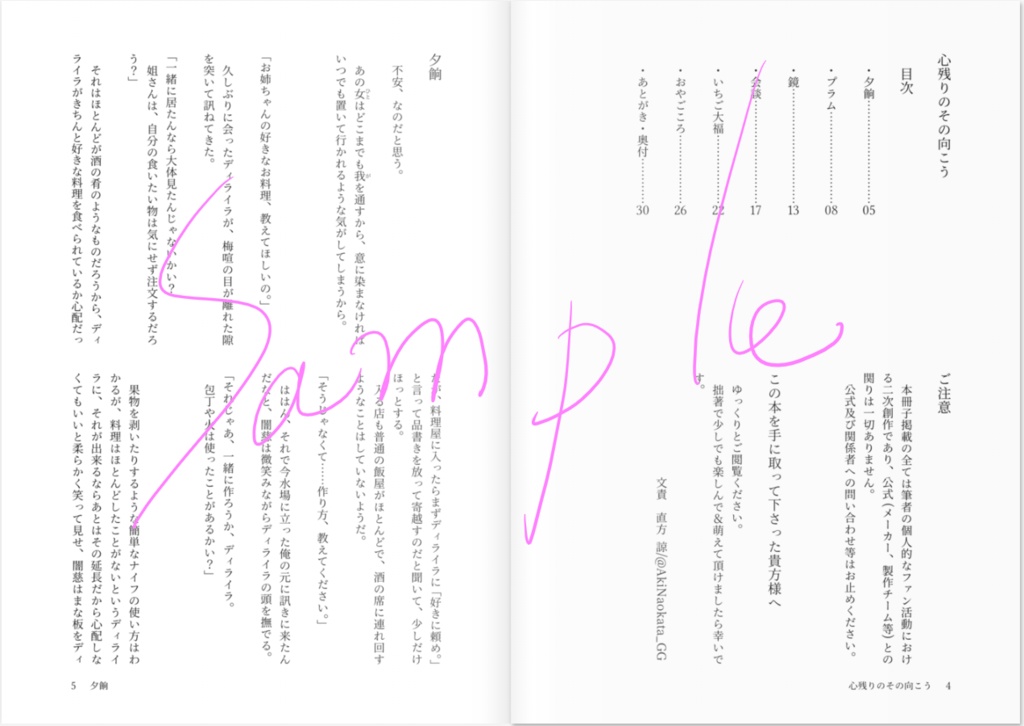 心残りのその向こう
目次
・夕餉……………05
・プラム……………08
・鏡……………13
・会談……………17
・いちご大福……………22
・おやごころ……………26
・あとがき・奥付……………30
ご注意
本冊子掲載の全ては筆者の個人的なファン活動におけ
る二次創作であり、公式(メーカー、製作チーム等)との
関りは一切ありません。
公式及び関係者への問い合わせ等はお止めください。
この本を手に取って下さった貴方様へ
ゆっくりとご閲覧ください。
拙著で少しでも楽しんで&萌えて頂けましたら幸いで
す。
文責 直方 諒/@AkiNaokata_GG
心残りのその向こう 4
夕餉
不安、なのだと思う。
あの女はどこまでも我を通すから、意に染まなければ
ひと
が
いつでも置いて行かれるような気がしてしまうから。
「お姉ちゃんの好きなお料理、教えてほしいの。」
久しぶりに会ったディライラが、梅喧の目が離れた隙
を突いて訊ねてきた。
「一緒に居たんなら大体見たんじゃないかい?
姐さんは、自分の食いたい物は気にせず注文するだろ
う?」
それはほとんどが酒の肴のようなものだろうから、ディ
ライラがきちんと好きな料理を食べられているか心配だっ
たが、料理屋に入ったらまずディライラに「好きに頼め。」
と言って品書きを放って寄越すのだと聞いて、少しだけ
ほっとする。
入る店も普通の飯屋がほとんどで、酒の席に連れ回す
ようなことはしていないようだ。
「そうじゃなくて……作り方、教えてください。」
ははん、それで今水場に立った俺の元に訊きに来たん
だなと、闇慈は微笑みながらディライラの頭を撫でる。
「それじゃあ、一緒に作ろうか、ディライラ。
包丁や火は使ったことがあるかい?」
果物を剥いたりするような簡単なナイフの使い方はわ
かるが、料理はほとんどしたことがないというディライ
ラに、それが出来るならあとはその延長だから心配しな
くてもいいと柔らかく笑って見せ、闇慈はまな板をディ
5 夕餉
Sample